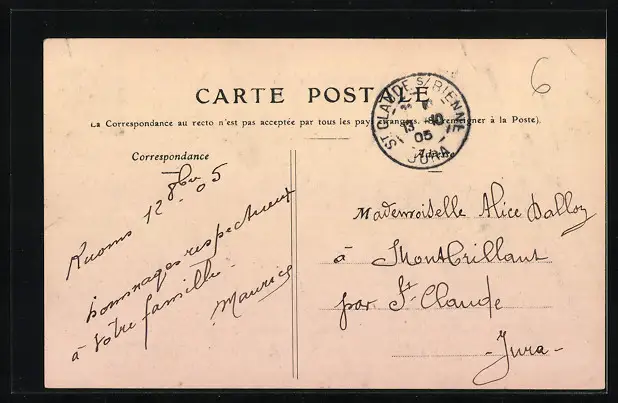 6
CARTE POSTALE
La Correspondance au recto n'est pas acceptée par tous les pays étrangers. (Se renseigner à la Poste).
ST CLAUDE S/ BIENNE
13 10
05
JURA
Correspondance
Adresse
Ruoms 12 8bre 05
hommages respectueux
à votre famille
Maurice
Mademoiselle Alice Dalloz
à Montbrillant
par St Claude
- Jura -